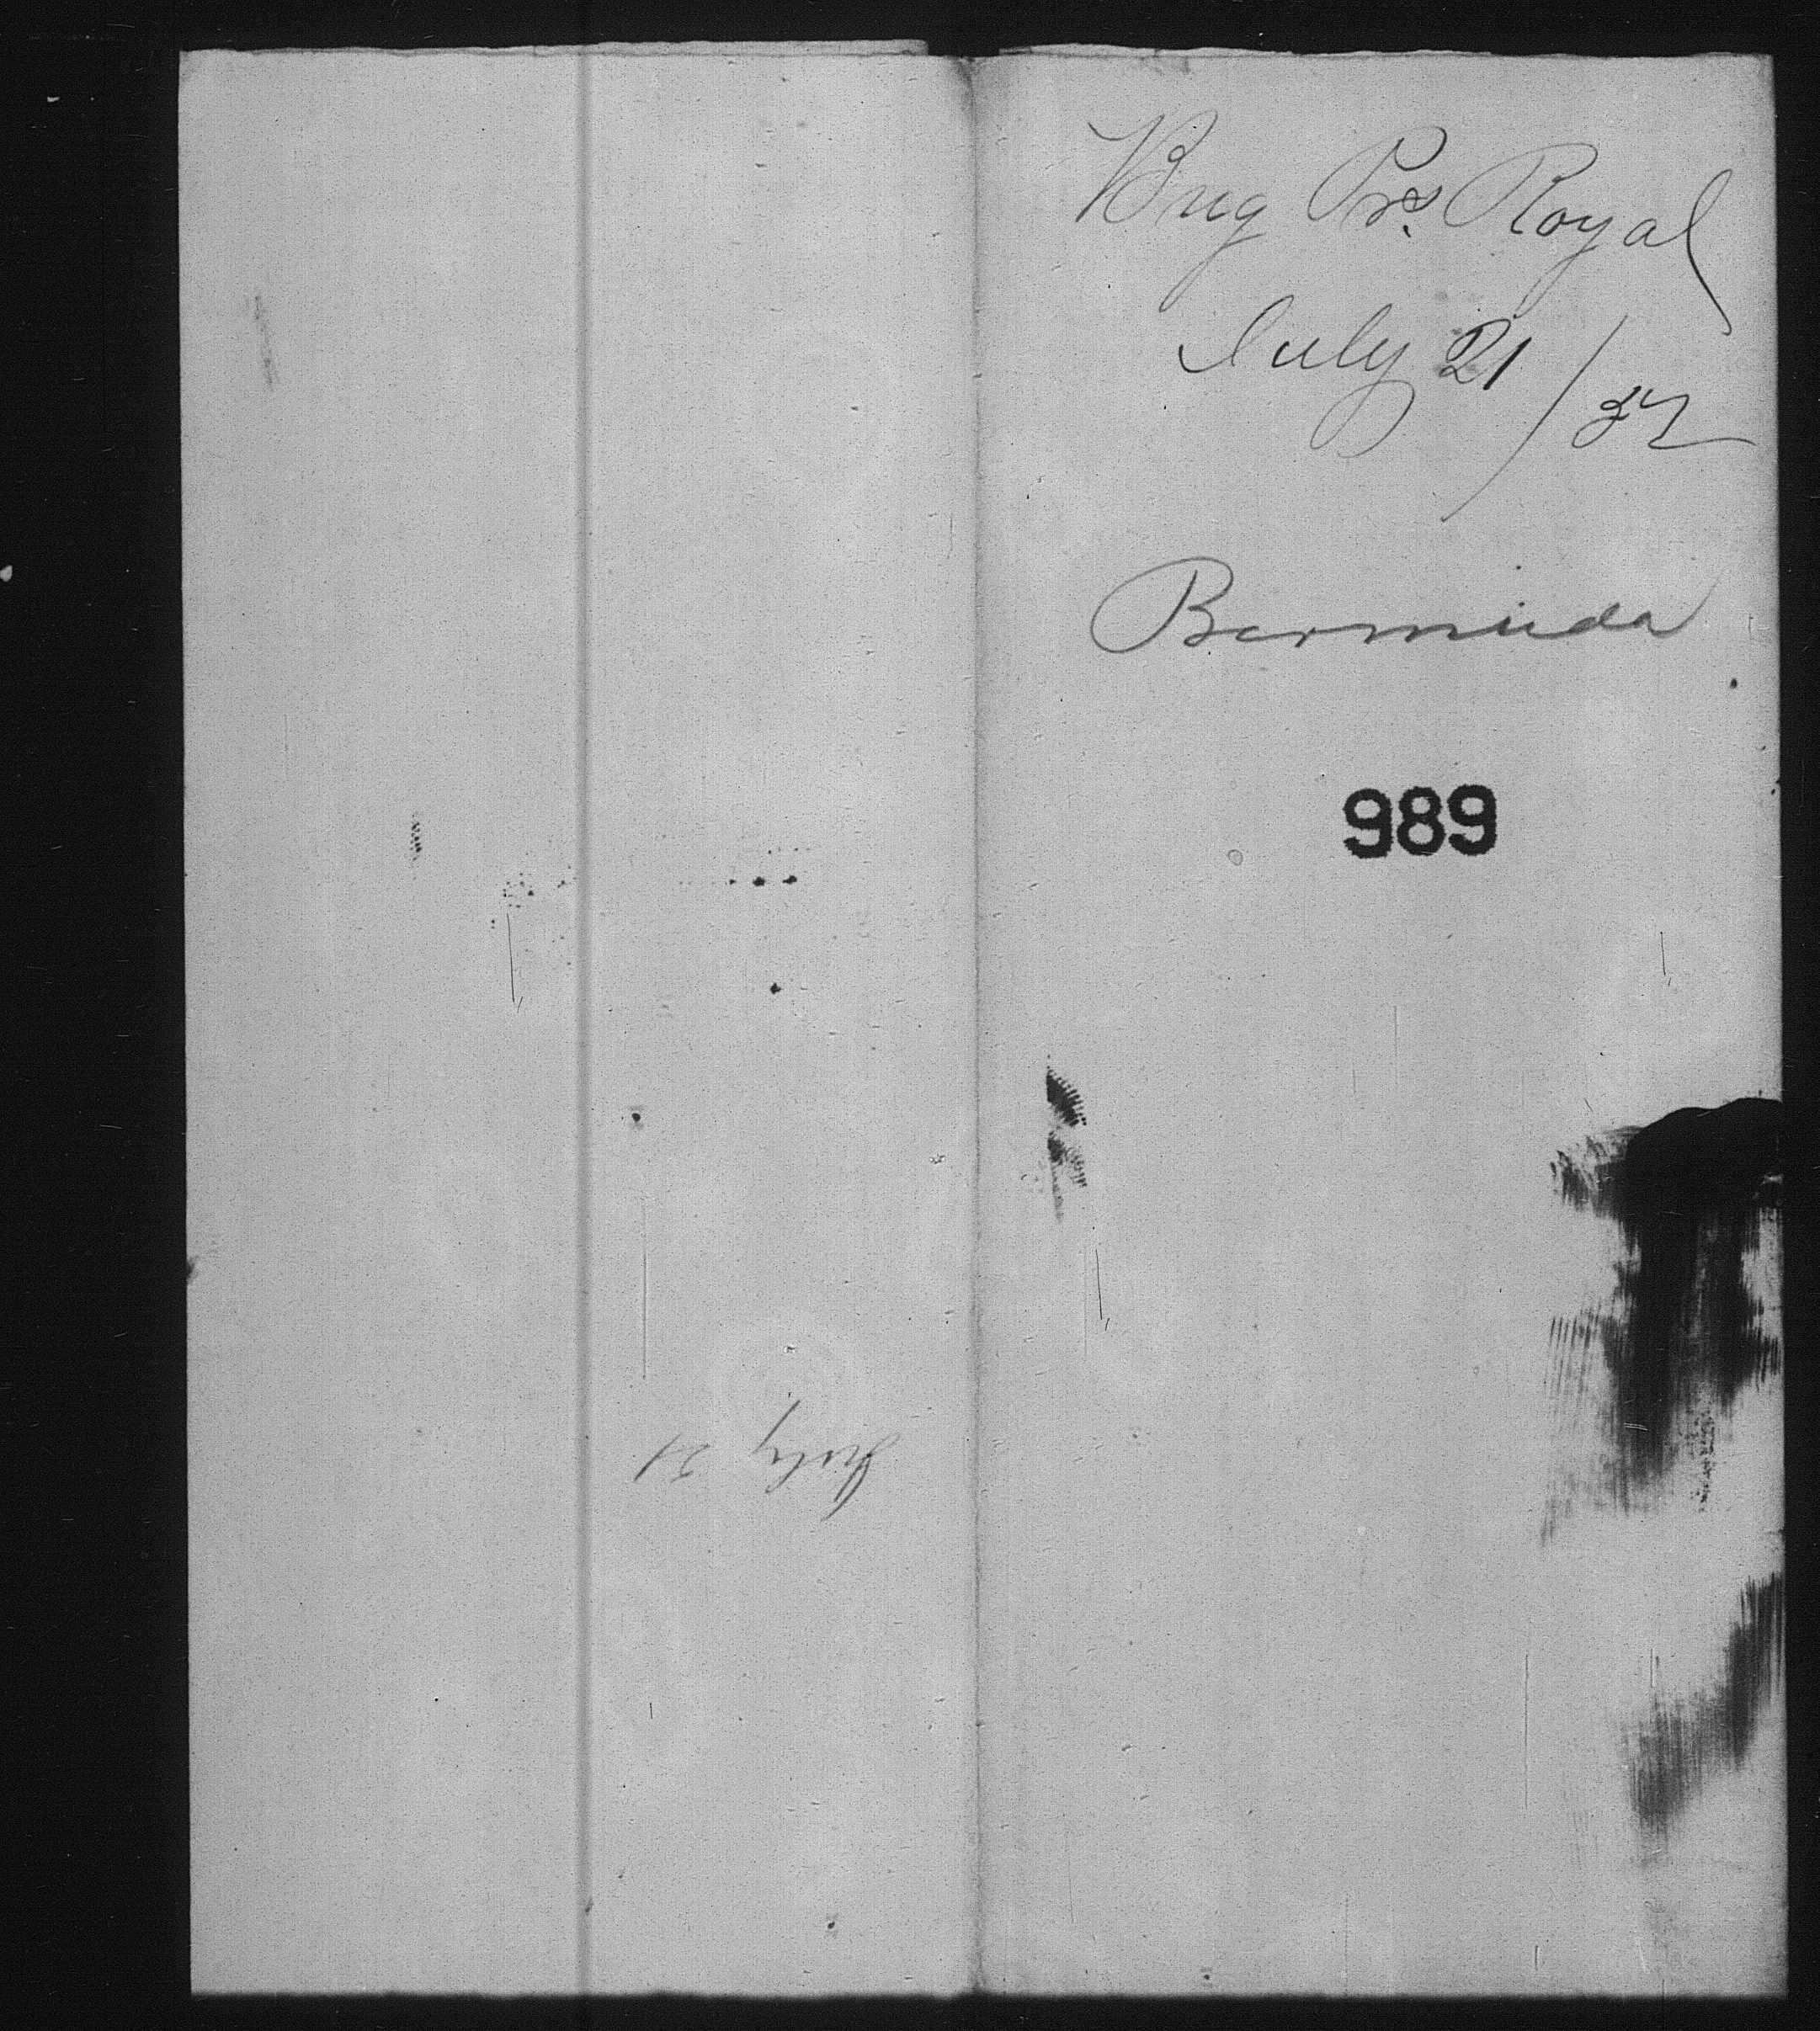 Brig Prs. Royal
July 21/37
Bermuda
989
July 21